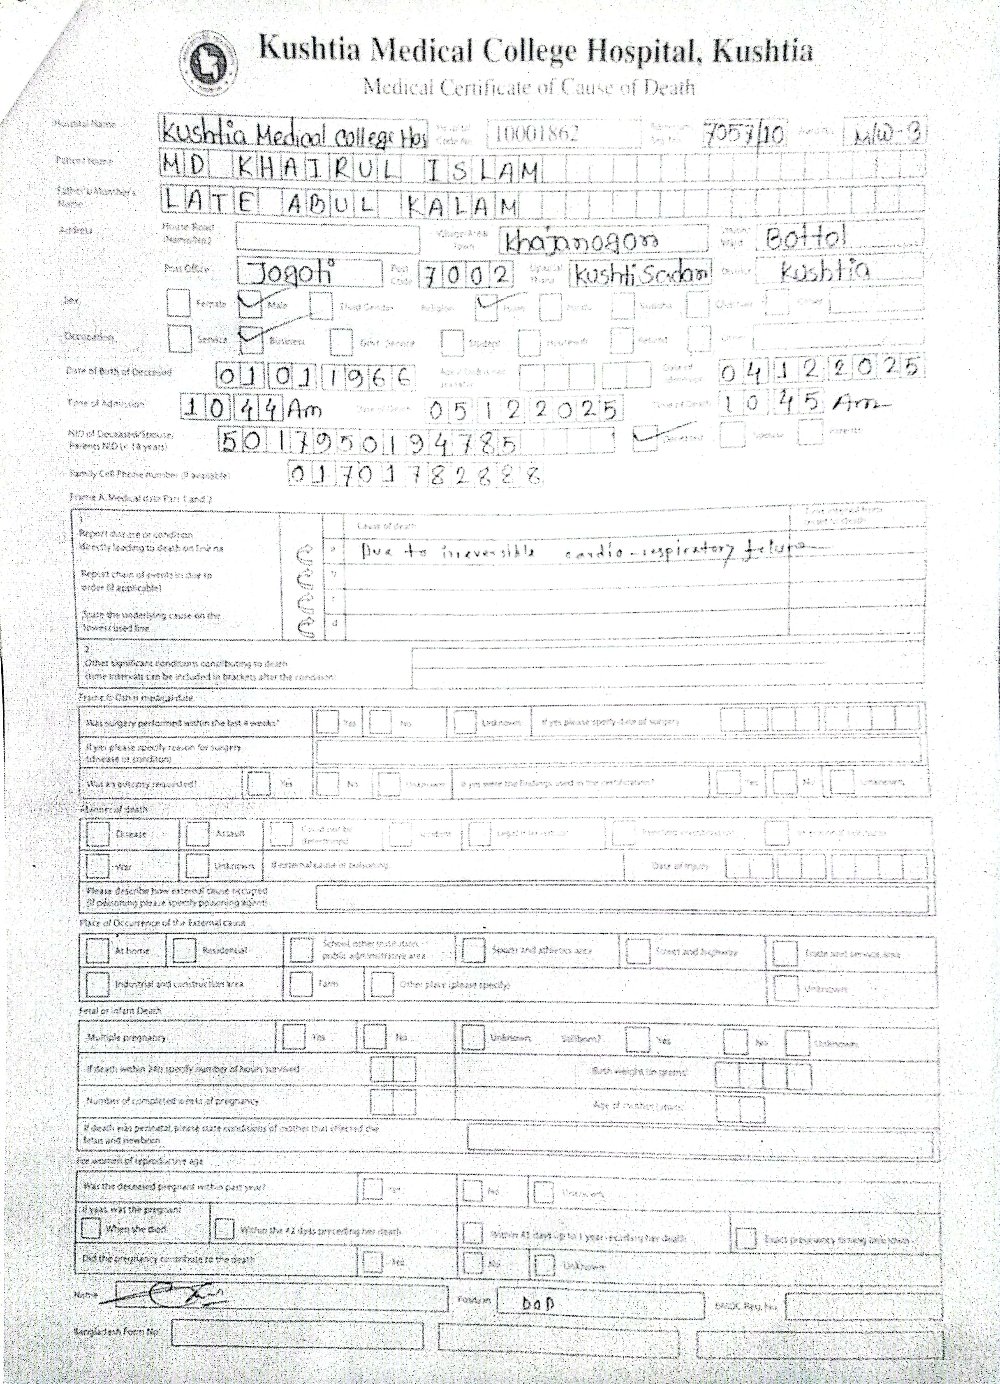 Kushtia Medical College Hospital, Kushtia
Medical Certificate of Cause of Death
Hospital Name Kushtia Medical College Hos 10001862 7057/10 M/W-3
Patient Name MD KHAIRUL ISLAM
Father's/Mother's Name LATE ABUL KALAM
Address House Road (Name/No.) Village Area Town Khajanogon Bottol
Post Office Jogoti Post Code 7002 Kushti Sadar Kushtia
Sex Female Male Third Gender Religion
Occupation Service Business Govt. Service Student
Date of Birth of Deceased 01011966 04122025
Time of Admission 1044 Am Date of Death 05122025 Time of Death 1045 Am
NID of Deceased/Spouse/ Parents NID (< 18 years) 5017950194785 Deceased Spouse Parents
Family Cell Phone number (if available) 01701782888
Frame A: Medical data Part 1 and 2
1
Report disease or condition directly leading to death on line a
Report chain of events in due to order (if applicable)
State the underlying cause on the lowest used line
Cause of death
a Due to irreversible cardio-respiratory feluro
b
c
d
2
Other significant conditions contributing to death (time intervals can be included in brackets after the condition)
Frame B: Other medical data
Was surgery performed within the last 4 weeks? Yes No Unknown If yes please specify date of surgery
If yes please specify reason for surgery (disease or condition)
Was autopsy requested? Yes No Unknown If yes were the findings used in the certification? Yes No Unknown
Manner of death
Disease Assault Could not be determined Accident Legal intervention Pending investigation
War Unknown If external cause or poisoning Date of injury
Please describe how external cause occurred (If poisoning please specify poisoning agent)
Place of Occurrence of the External cause
At home Residential School, other institution, public administrative area Sports and athletics area Street and highway Trade and service area
Industrial and construction area Farm Other place (please specify) Unknown
Fetal or infant Death
Multiple pregnancy Yes No Unknown Stillborn? Yes No Unknown
If death within 24h specify number of hours survived Birth weight (in grams)
Number of completed weeks of pregnancy Age of mother (years)
If death was perinatal, please state conditions of mother that affected the fetus and newborn
For women of reproductive age
Was the deceased pregnant within past year? Yes No Unknown
If yes, was she pregnant
When she died Within the 42 days preceding her death Within 43 days up to 1 year preceding her death Exact pregnancy timing unknown
Did the pregnancy contribute to the death Yes No Unknown
Name Position DOD BMDC Reg. No.
Bangladesh Form No